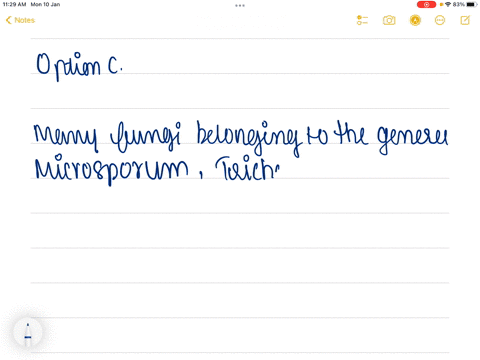 11:29 AM Mon 10 Jan
83%
Notes
Option C.
Many fungi belonging to the genera
Microsporum, Trich